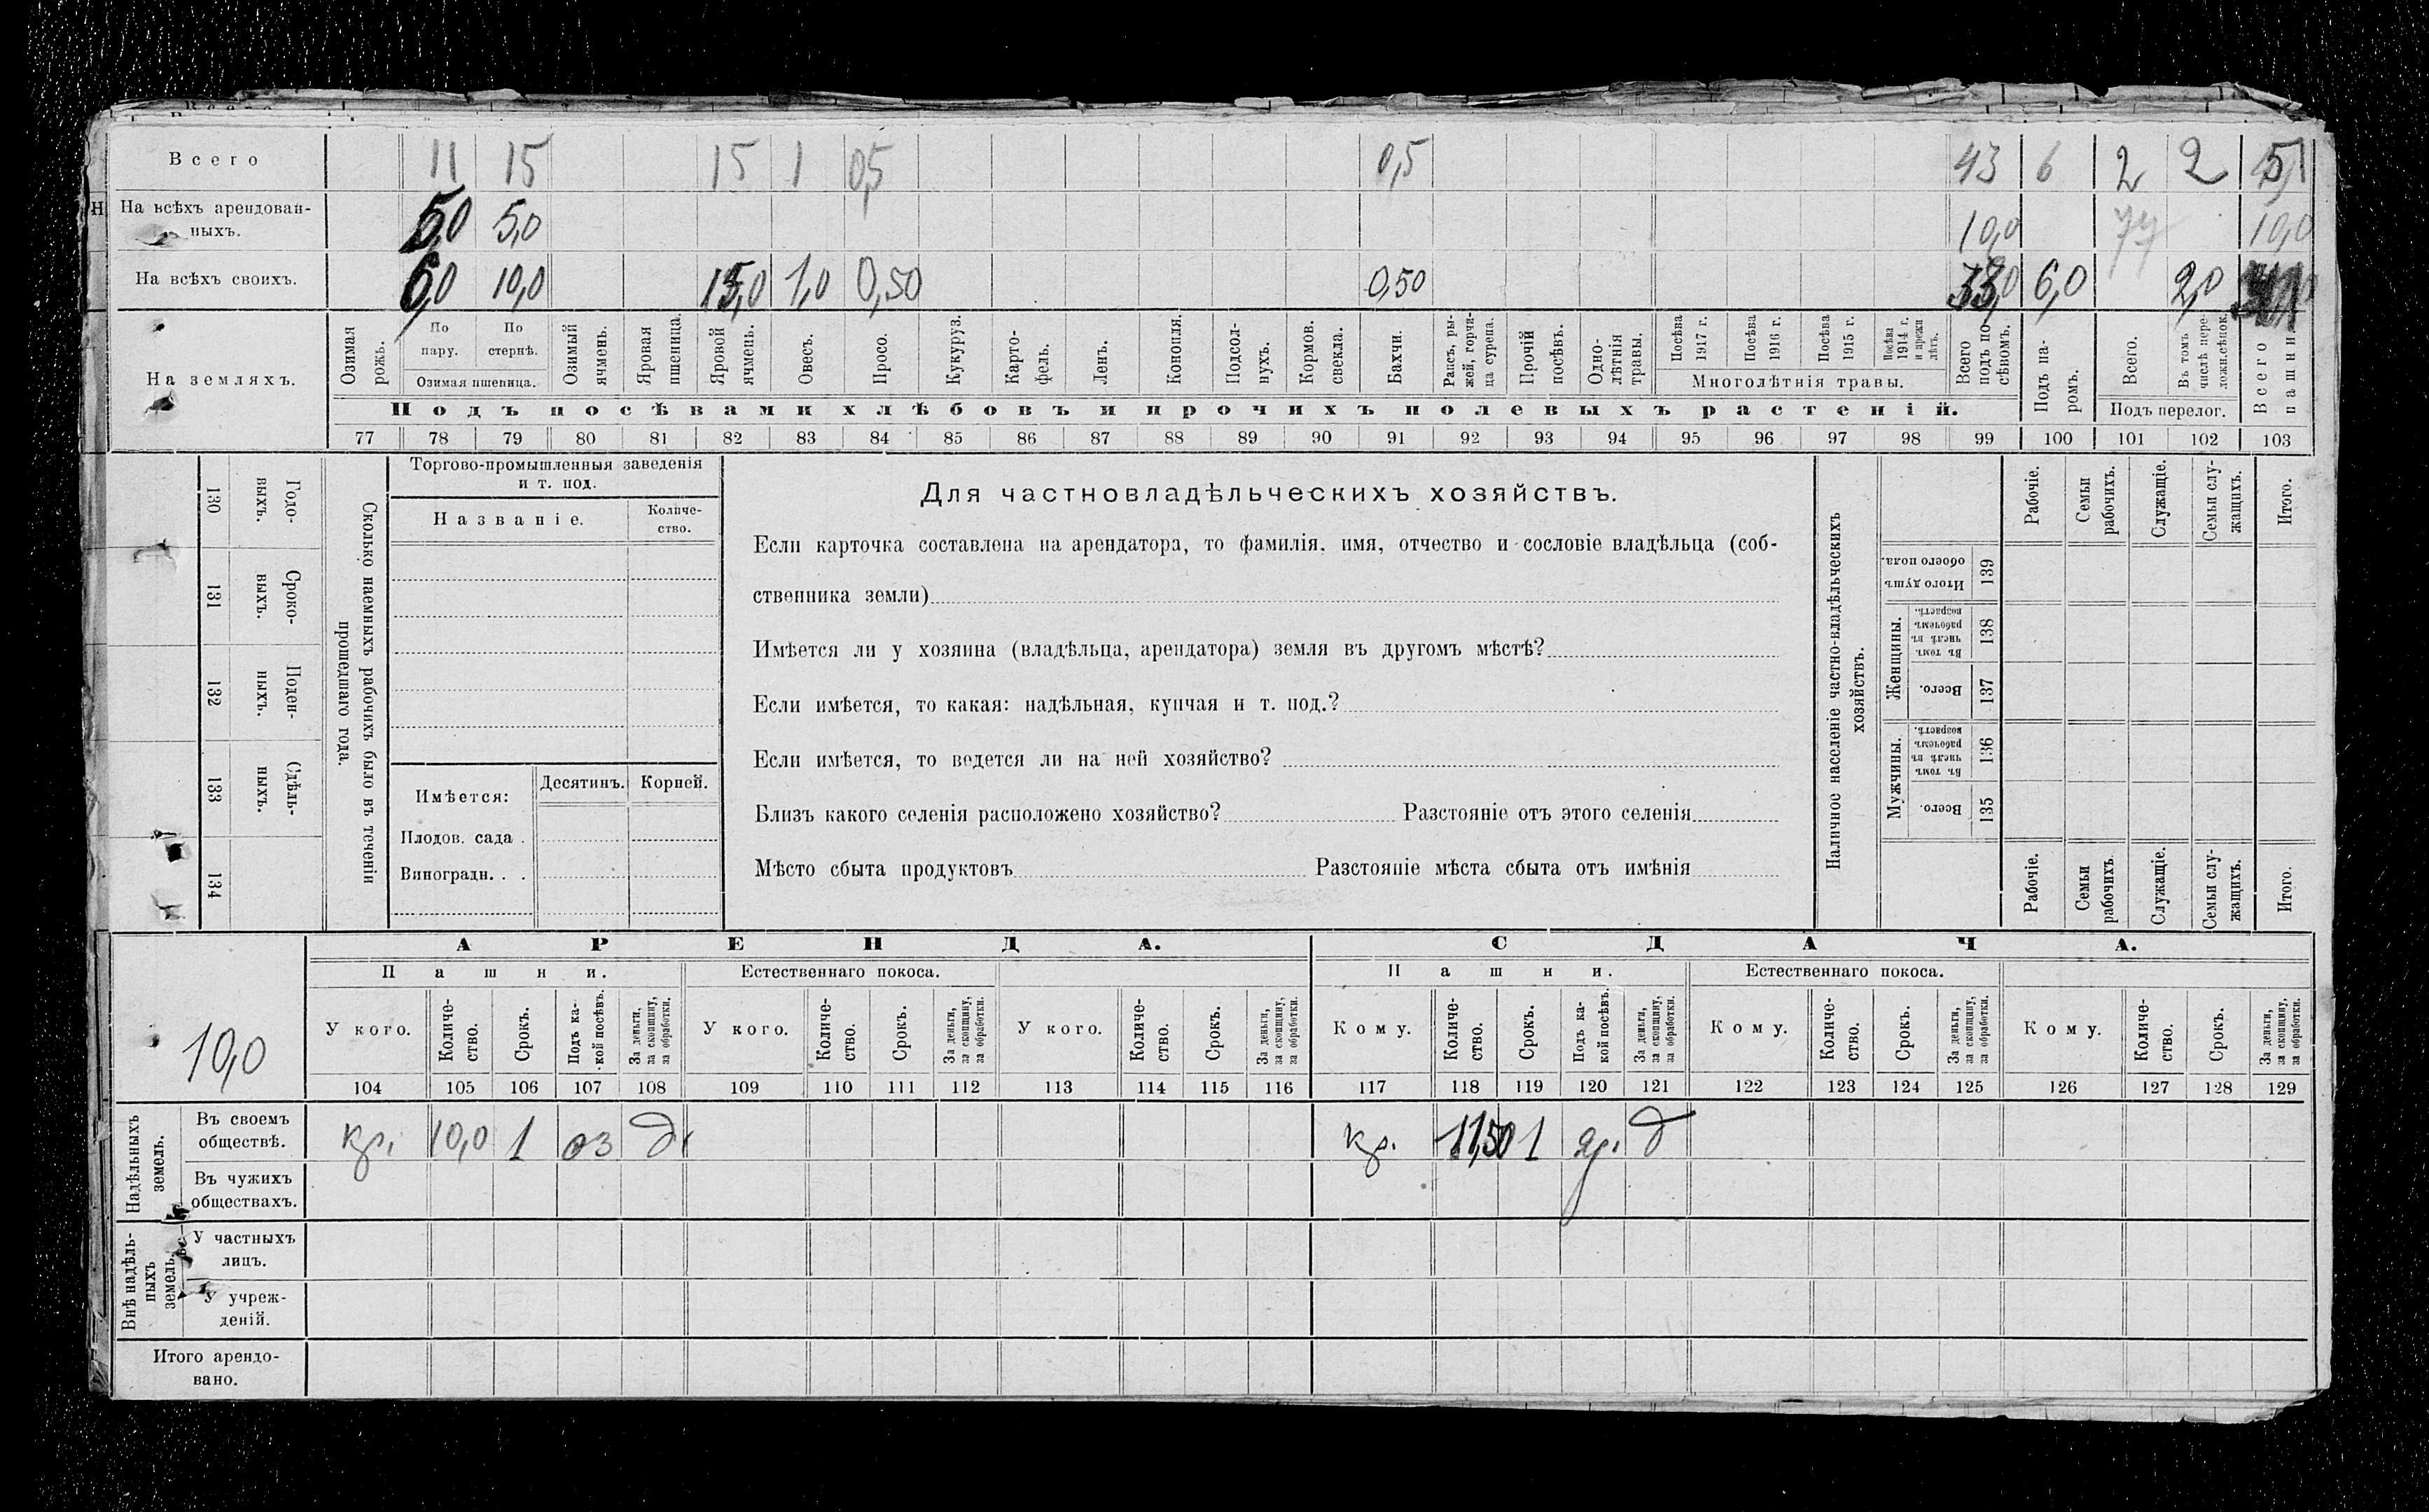 Всего 11 15 15 1 0,5 0,5 43 6 2 2 51
На всѣхъ арендован-
ныхъ. 5,0 5,0 10,0 10,0
На всѣхъ своихъ. 6,0 10,0 15,0 1,0 0,50 0,50 33,0 6,0 2,0
На земляхъ.
Озимая рожь.
По пару.
По стернѣ.
Озимая пшеница.
Озимый ячмень.
Яровая пшеница.
Яровой ячмень.
Овесъ.
Просо.
Кукуруз.
Карто-
фель.
Ленъ.
Конопля.
Подсол-
нухъ.
Кормов.
свекла.
Бахчи.
Рапсъ, ры-
жей, горчи-
ца сурепа.
Прочій посѣвъ.
Одно-
лѣтнія травы.
Посѣва 1917 г.
Посѣва 1916 г.
Посѣва 1915 г.
Посѣва 1914 г. и прежн лѣтъ.
Многолѣтнія травы.
Всего подъ по-
сѣвомъ.
Подъ посѣвами хлѣбовъ и прочихъ полевыхъ растеній.
Подъ па-
ромъ.
Всего.
Въ томъ числѣ пере-
ложн.сѣнок.
Подъ перелог.
Всего пашни
77 78 79 80 81 82 83 84 85 86 87 88 89 90 91 92 93 94 95 96 97 98 99 100 101 102 103
130 Годо-
выхъ.
131 Сроко-
выхъ.
132 Поден-
ныхъ.
133 Сдѣль-
ныхъ.
134
Сколько наемныхъ рабочихъ было въ теченіи
прошедшаго года.
Торгово-промышленныя заведенія
и т. под.
Названіе.
Количе-
ство.
Имѣется: Десятинъ. Корней.
Плодов. сада .
Виноградн. . .
Для частновладѣльческихъ хозяйствъ.
Если карточка составлена на арендатора, то фамилія, имя, отчество и сословіе владѣльца (соб-
ственника земли)
Имѣется ли у хозяина (владѣльца, арендатора) земля въ другомъ мѣстѣ?
Если имѣется, то какая: надѣльная, купчая и т. под.?
Если имѣется, то ведется ли на ней хозяйство?
Близъ какого селенія расположено хозяйство? Разстояніе отъ этого селенія
Мѣсто сбыта продуктовъ Разстояніе мѣста сбыта отъ имѣнія
Наличное населеніе частно-владѣльческихъ
хозяйствъ.
Рабочіе.
Семьи рабочихъ.
Служащіе.
Семьи слу-
жащихъ.
Итого.
Итого душъ обоего пола. 139
Женщины.
Въ томъ числѣ въ рабочемъ возрастѣ. 138
Всего. 137
Мужчины.
Въ томъ числѣ въ рабочемъ возрастѣ. 136
Всего. 135
Рабочіе.
Семьи рабочихъ.
Служащіе.
Семьи слу-
жащихъ.
Итого.
10,0
АРЕНДА. СДАЧА.
Пашни. Естественнаго покоса. Пашни. Естественнаго покоса.
У кого. Количе-
ство. Срокъ. Подъ ка-
кой посѣвъ. За деньги,
за скопщину,
за обработки.
У кого. Количе-
ство. Срокъ. За деньги,
за скопщину,
за обработки.
У кого. Количе-
ство. Срокъ. За деньги,
за скопщину,
за обработки.
Кому. Количе-
ство. Срокъ. Подъ ка-
кой посѣвъ. За деньги,
за скопщину,
за обработки.
Кому. Количе-
ство. Срокъ. За деньги,
за скопщину,
за обработки.
Кому. Количе-
ство. Срокъ. За деньги,
за скопщину,
за обработки.
104 105 106 107 108 109 110 111 112 113 114 115 116 117 118 119 120 121 122 123 124 125 126 127 128 129
Надѣльныхъ
земель.
Въ своемъ
обществѣ. кр. 10,0 1 оз д. кр. 11,50 1 яр. д
Въ чужихъ
обществахъ.
Внѣ надѣль-
ныхъ
земель.
У частныхъ
лицъ.
У учреж-
деній.
Итого арендо-
вано.